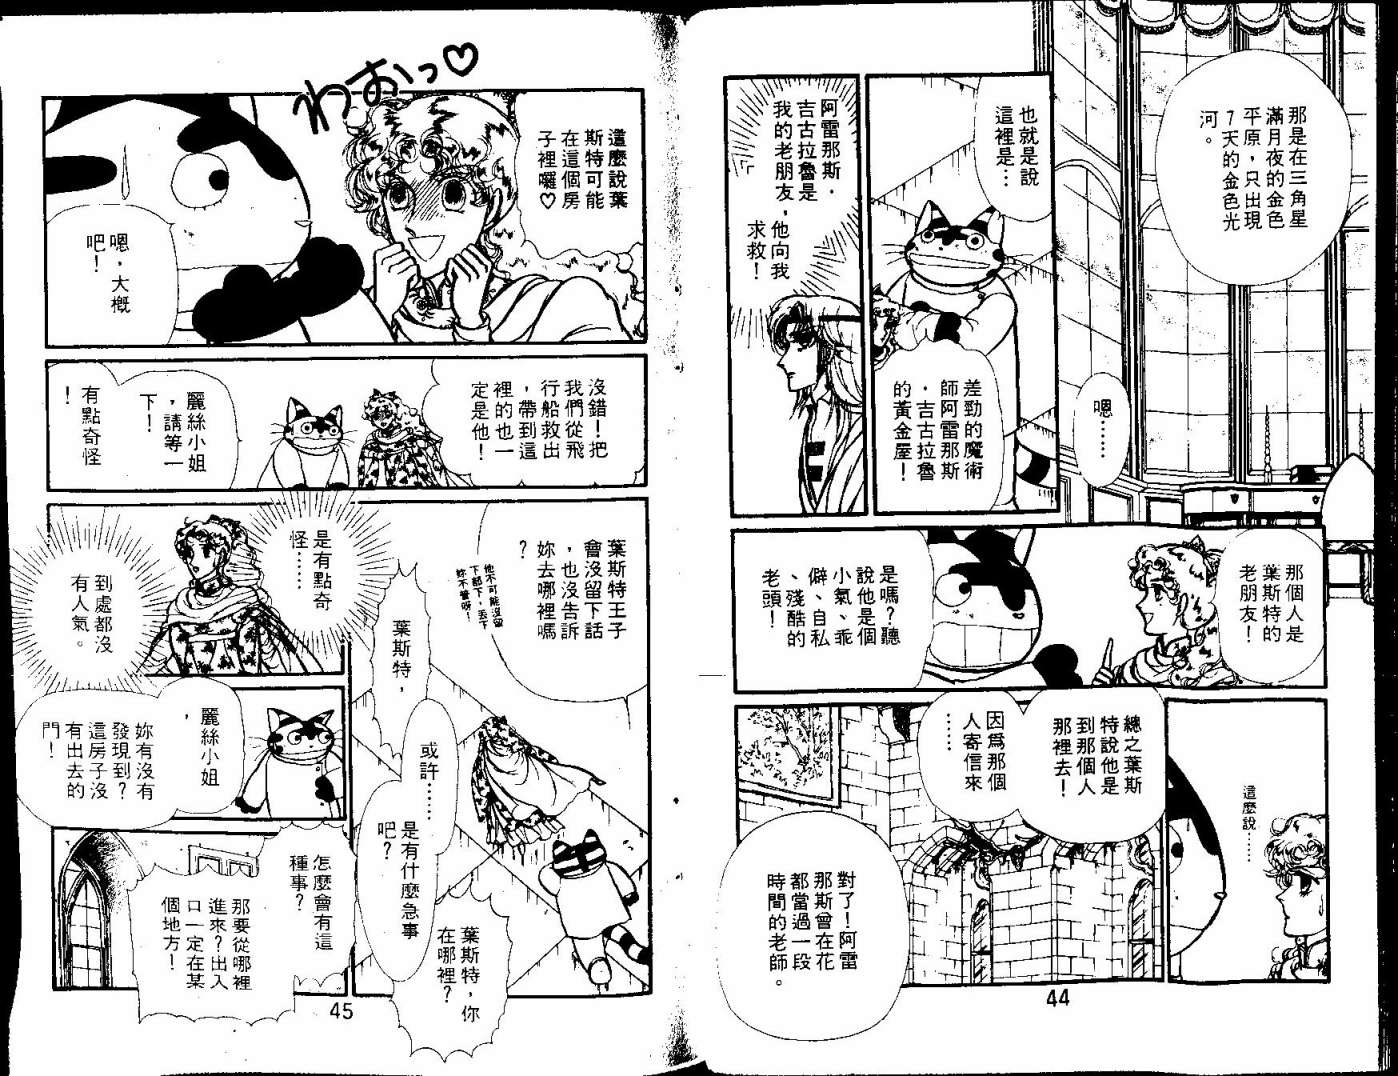 那是在三角星
滿月夜的金色
平原，只出現
7天的金色光
河。
也就是說
這裡是…
嗯……
差勁的魔術
師阿雷那斯
．吉古拉魯
的黃金屋！
阿雷那斯．
吉古拉魯是
我的老朋友，
他向我
求救！
那個人是
葉斯特的
老朋友！
是嗎？聽
說他是個
小氣、乖
僻、自私
、殘酷的
老頭！
這麼說……
總之葉斯
特說他是
到那個人
那裡去！
因爲那個
人寄信來
……
對了！阿雷
那斯曾在花
都當過一段
時間的老師。
44
わおっ♡
這麼說葉
斯特可能
在這個房
子裡囉♡
嗯，大槪
吧！
沒錯！把
我們從飛
行船救出
，帶到這
裡的也一
定是他！
麗絲小姐
，請等一
下！
有點奇怪
！
葉斯特王子
會沒留下話
，也沒告訴
妳去哪裡嗎
？
他不可能沒留
下都下，丟下
妳不管呀！
是有點奇
怪……
到處都沒
有人氣。
葉斯特，
或許……
是有什麼急事
吧？
葉斯特，你
在哪裡？
麗絲小姐
，
妳有沒有
發現到？
這房子沒
有出去的
門！
怎麼會有這
種事？
那要從哪裡
進來？出入
口一定在某
個地方！
45